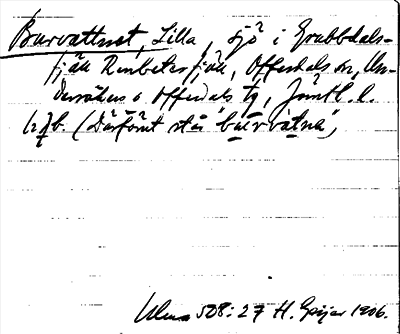 Burvattnet, Lilla, sjö i Grubbdals-
fjäll Renbetesfjäll, Offerdals sn, Un-
dersåkers o Offerdals tg, Jämtl. l.
(Därjämt står "burvatna",
Ulma 508:27 H. Geijer 1906.